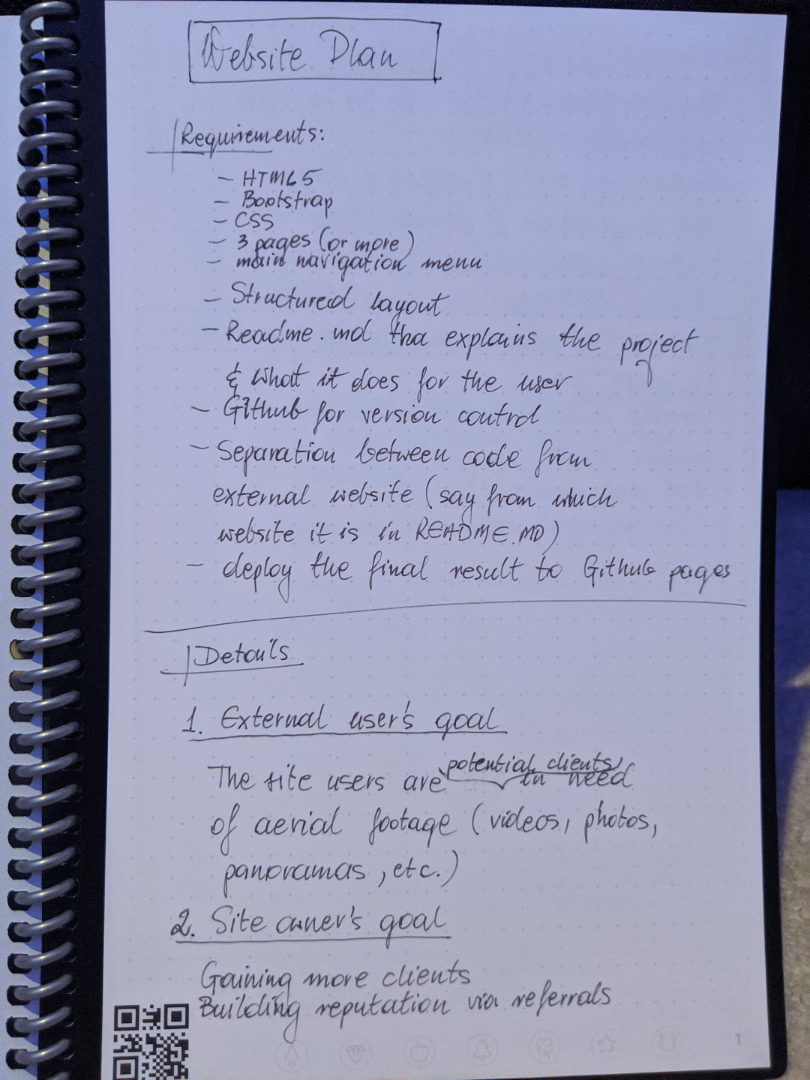 Website Plan
Requirements:
– HTML5
– Bootstrap
– CSS
– 3 pages (or more)
– main navigation menu
– Structured layout
– Readme.md tha explains the project
& what it does for the user
– Github for version control
– Separation between code from
external website (say from which
website it is in README.MD)
– deploy the final result to Github pages
Details
1. External user's goal
The site users are potential clients in need
of aerial footage (videos, photos,
panoramas, etc.)
2. Site owner's goal
Gaining more clients
Building reputation via referrals
1